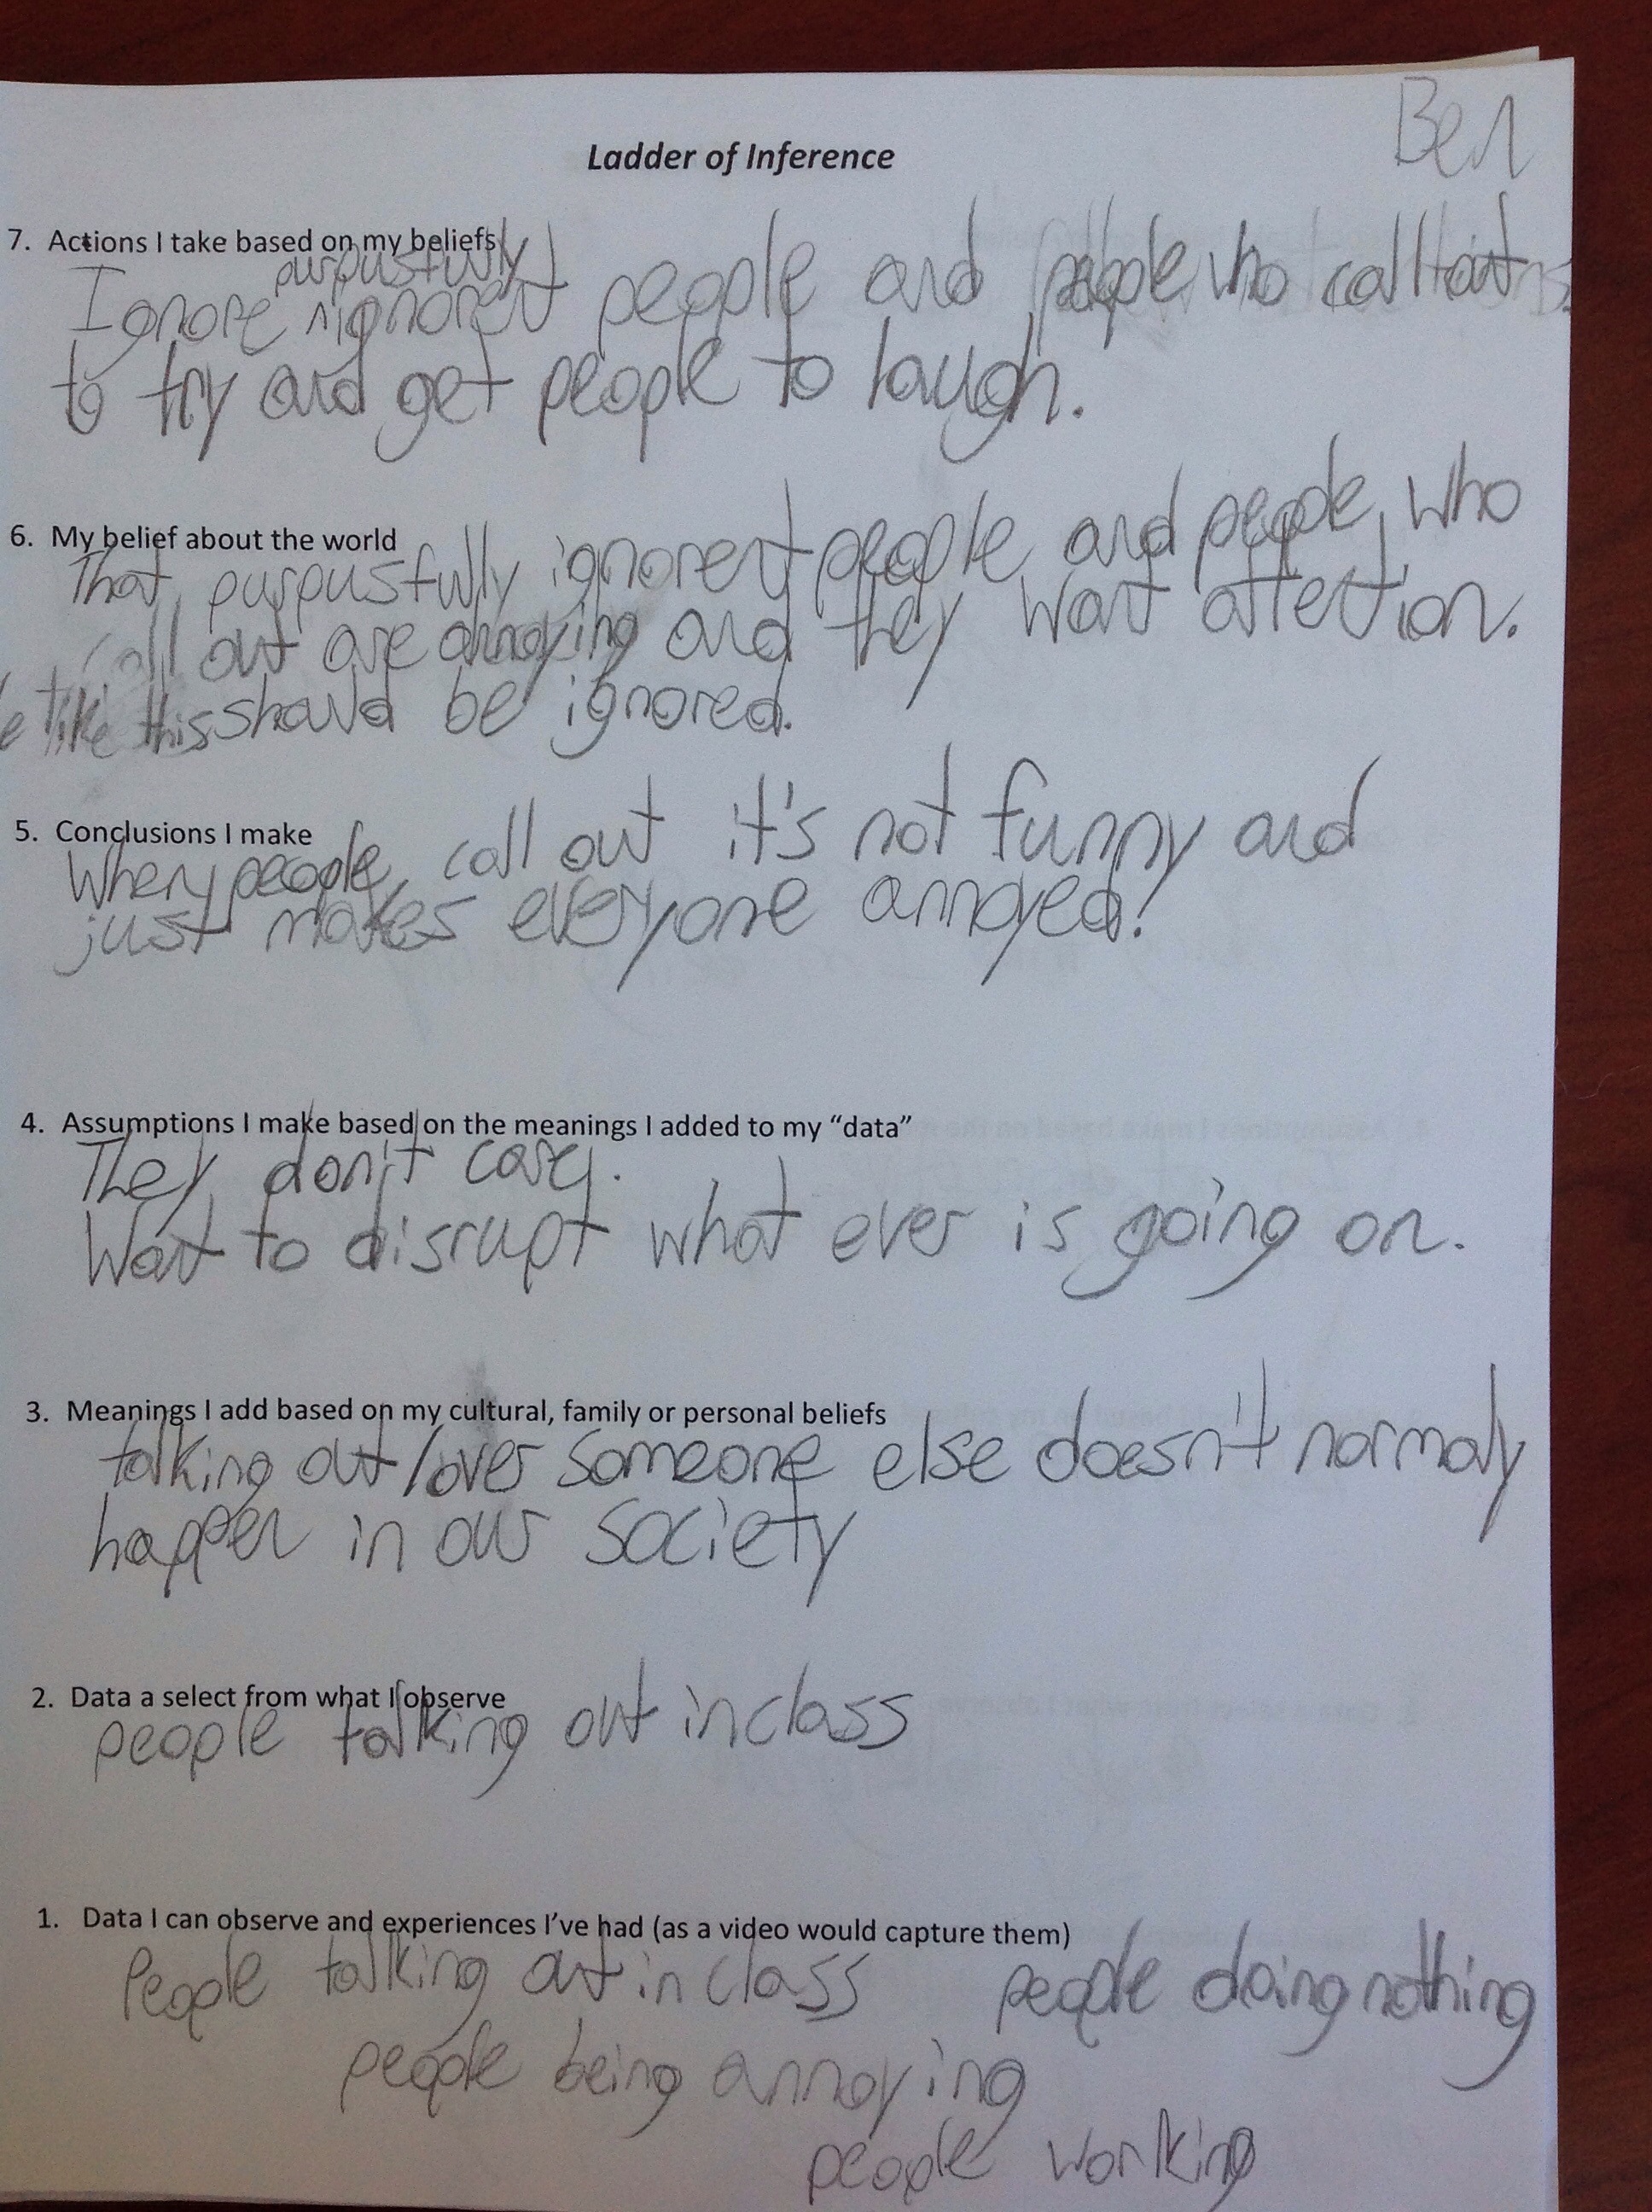 Ben
Ladder of Inference
7. Actions I take based on my beliefs
purpustfully
Ignore ignorent people and people who call out
to try and get people to laugh.
6. My belief about the world
That purpustfully ignorent people and people who
call out are annoying and they want attention.
like this should be ignored.
5. Conclusions I make
When people call out it's not funny and
just makes everyone annoyed!
4. Assumptions I make based on the meanings I added to my “data”
They don't care.
Want to disrupt what ever is going on.
3. Meanings I add based on my cultural, family or personal beliefs
talking out/over someone else doesn't normaly
happen in our society
2. Data a select from what I observe
people talking out in class
1. Data I can observe and experiences I've had (as a video would capture them)
People talking out in class people doing nothing
people being annoying
people working